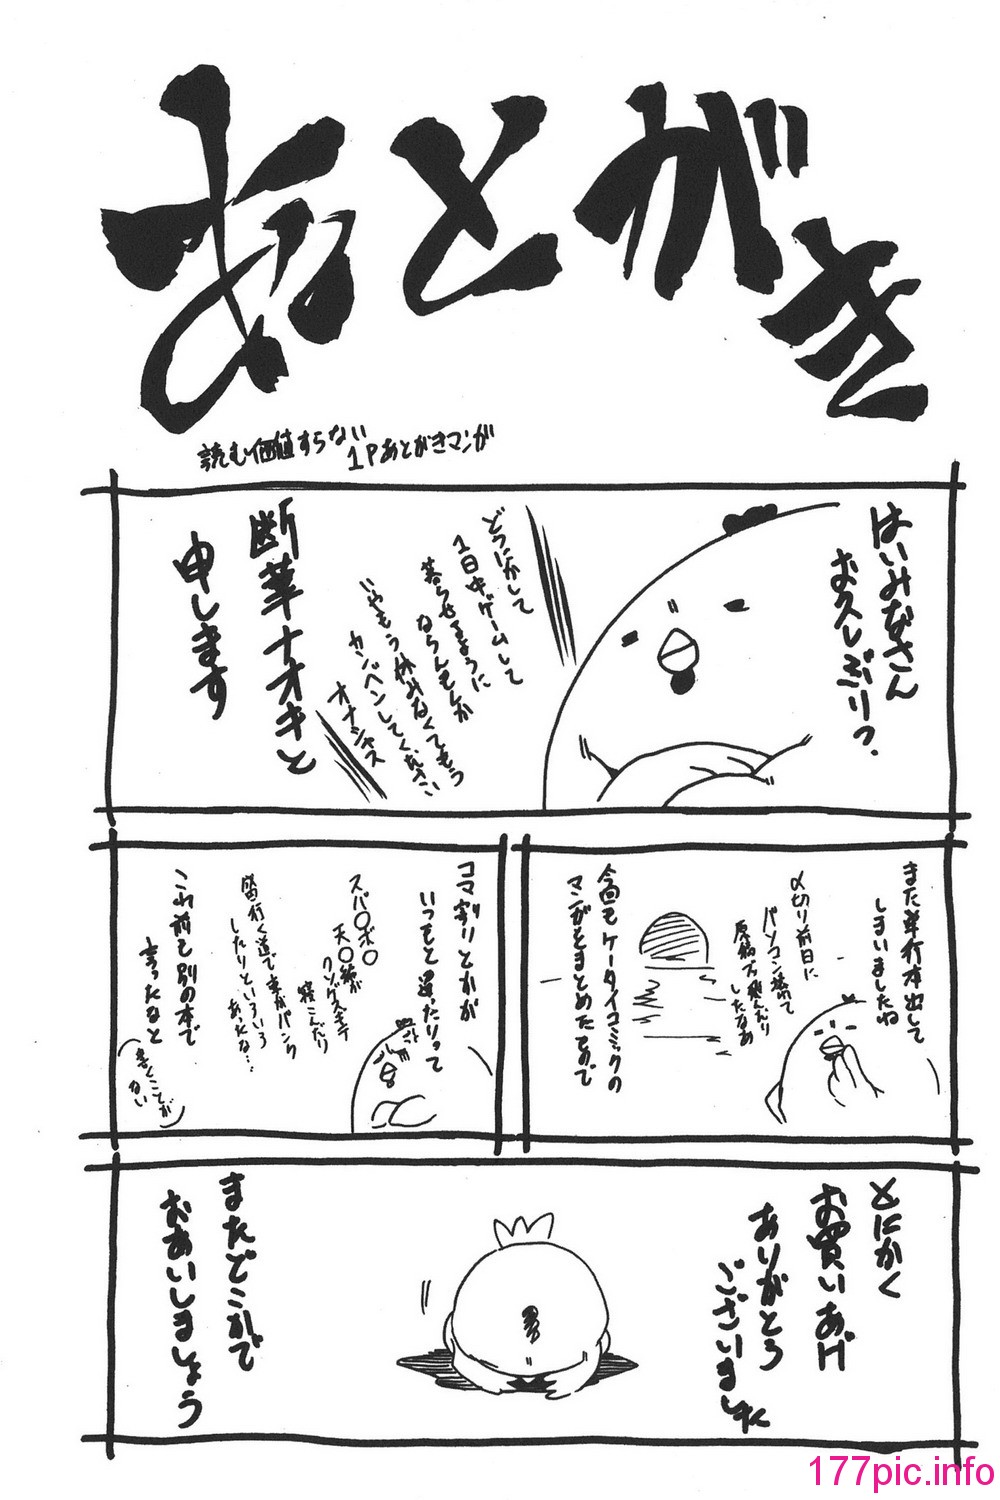 あとがき
読む価値すらない
1Pあとがきマンガ
はいみなさん
お久しぶりっ。
どうにかして
1日中ゲームして
暮らせるように
ならんもんか
いやもう休みなくてもう
カンベンしてください
オナシャス
断華ナオキと
申します
また単行本出して
しまいましたね
〆切り前日に
パソコン壊れて
原稿フッ飛んだり
したなあ
今回もケータイコミックの
マンガをまとめたもので
コマ割りとかが
いつもと違ったりって
スパ〇ボ〇
天〇編が
クソゲスギテ
寝こんだり
したりといろいろ
あったな…
これ前も別の本で
言ったなと
(書くことが
ない)
とにかく
お買いあげ
ありがとう
ございました
またどこかで
おあいしましょう
177pic.info